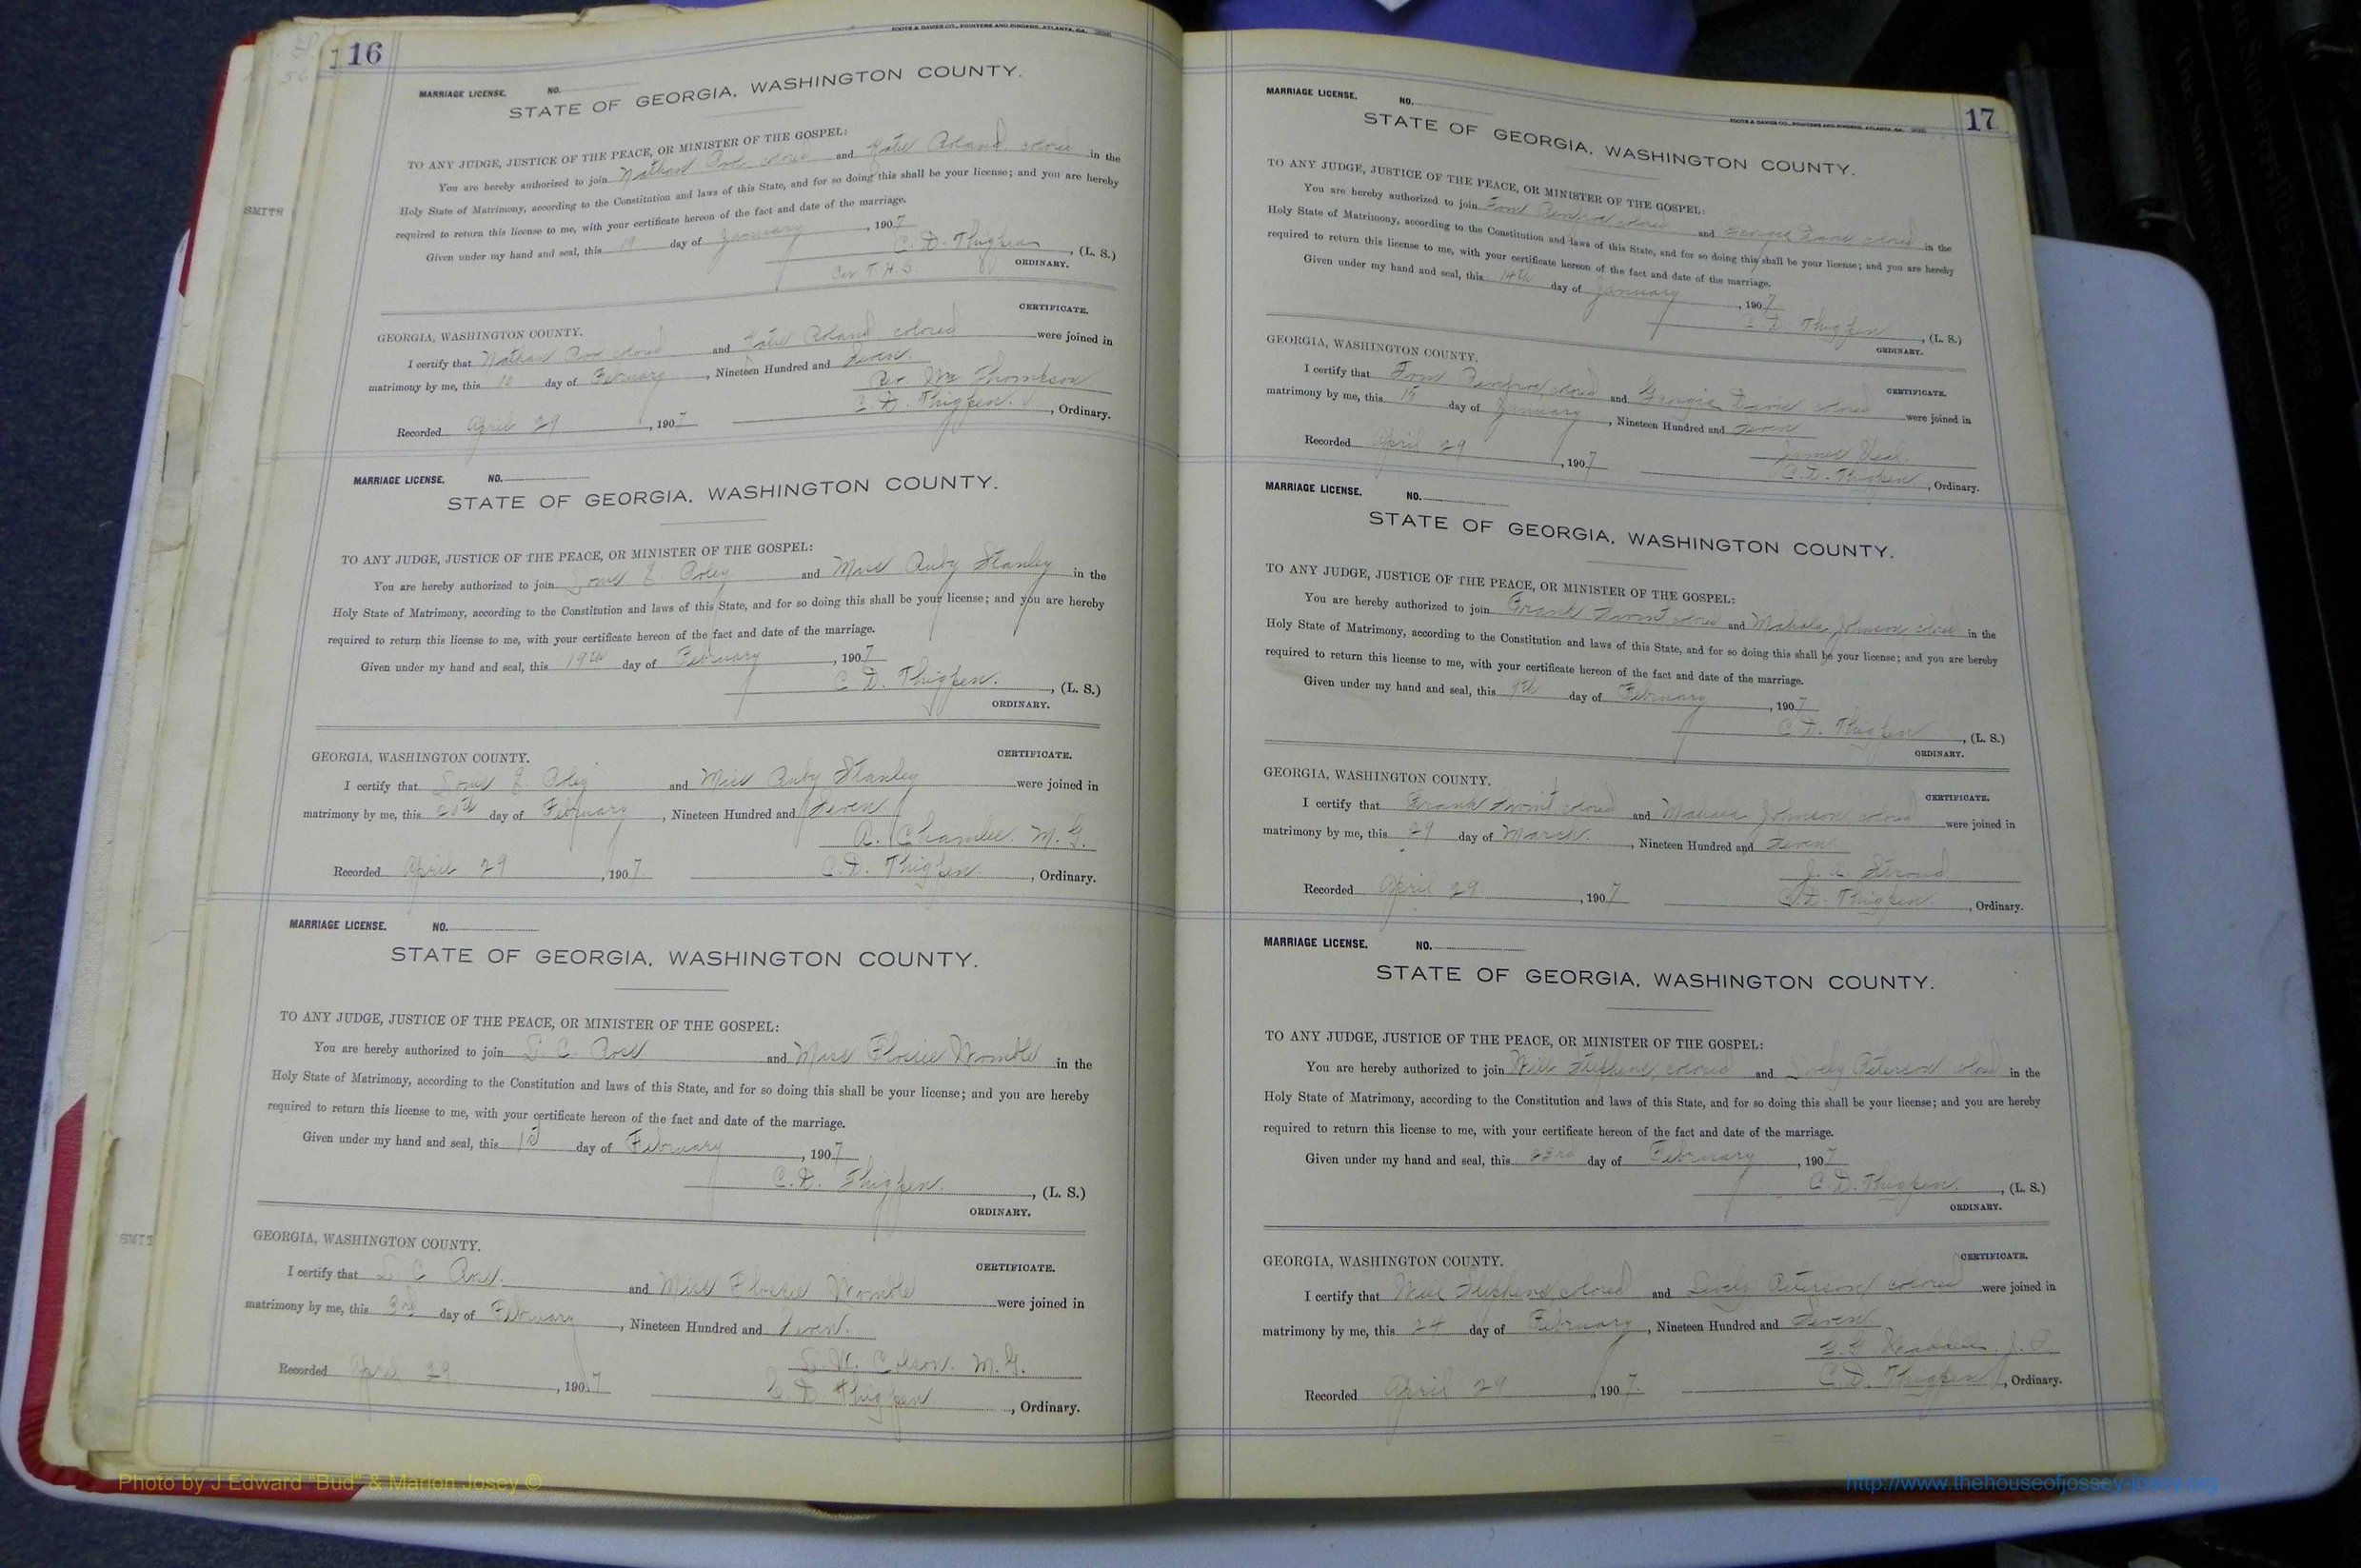 16
FOOTE & DAVIES CO., PRINTERS AND BINDERS, ATLANTA, GA.
MARRIAGE LICENSE. NO.
STATE OF GEORGIA, WASHINGTON COUNTY.
TO ANY JUDGE, JUSTICE OF THE PEACE, OR MINISTER OF THE GOSPEL:
You are hereby authorized to join Nathan colored and Katie Roland colored in the
Holy State of Matrimony, according to the Constitution and laws of this State, and for so doing this shall be your license; and you are hereby
required to return this license to me, with your certificate hereon of the fact and date of the marriage.
Given under my hand and seal, this 19 day of January, 1907
C. D. Thigpen, (L. S.)
Per T. H. S. ORDINARY.
CERTIFICATE.
GEORGIA, WASHINGTON COUNTY.
I certify that Nathan colored and Katie Roland colored were joined in
matrimony by me, this 10 day of February, Nineteen Hundred and Seven.
Rev. Wm Thompson
Recorded April 29, 1907 C. D. Thigpen., Ordinary.
MARRIAGE LICENSE. NO.
STATE OF GEORGIA, WASHINGTON COUNTY.
TO ANY JUDGE, JUSTICE OF THE PEACE, OR MINISTER OF THE GOSPEL:
You are hereby authorized to join and Miss Ruby Stanley in the
Holy State of Matrimony, according to the Constitution and laws of this State, and for so doing this shall be your license; and you are hereby
required to return this license to me, with your certificate hereon of the fact and date of the marriage.
Given under my hand and seal, this 19th day of February, 1907
C. D. Thigpen., (L. S.)
ORDINARY.
CERTIFICATE.
GEORGIA, WASHINGTON COUNTY.
I certify that and Miss Ruby Stanley were joined in
matrimony by me, this 20th day of February, Nineteen Hundred and Seven
A. Chamlee. M. G.
Recorded April 29, 1907 C. D. Thigpen., Ordinary.
MARRIAGE LICENSE. NO.
STATE OF GEORGIA, WASHINGTON COUNTY.
TO ANY JUDGE, JUSTICE OF THE PEACE, OR MINISTER OF THE GOSPEL:
You are hereby authorized to join C. Ross and Miss Flossie Womble in the
Holy State of Matrimony, according to the Constitution and laws of this State, and for so doing this shall be your license; and you are hereby
required to return this license to me, with your certificate hereon of the fact and date of the marriage.
Given under my hand and seal, this day of February, 1907
C. D. Thigpen., (L. S.)
ORDINARY.
CERTIFICATE.
GEORGIA, WASHINGTON COUNTY.
I certify that C Ross. and Miss Flossie Womble were joined in
matrimony by me, this 3rd day of February, Nineteen Hundred and Seven.
Colson. M. G.
Recorded April 29, 1907 C. D. Thigpen, Ordinary.
17
FOOTE & DAVIES CO., PRINTERS AND BINDERS, ATLANTA, GA.
MARRIAGE LICENSE. NO.
STATE OF GEORGIA, WASHINGTON COUNTY.
TO ANY JUDGE, JUSTICE OF THE PEACE, OR MINISTER OF THE GOSPEL:
You are hereby authorized to join Tom Renfroe colored and Georgia Davis colored in the
Holy State of Matrimony, according to the Constitution and laws of this State, and for so doing this shall be your license; and you are hereby
required to return this license to me, with your certificate hereon of the fact and date of the marriage.
Given under my hand and seal, this 14th day of January, 1907
C. D. Thigpen, (L. S.)
ORDINARY.
GEORGIA, WASHINGTON COUNTY.
CERTIFICATE.
I certify that Tom Renfroe, colored and Georgia Davis colored were joined in
matrimony by me, this 15 day of January, Nineteen Hundred and Seven
James
Recorded April 29, 1907 C. D. Thigpen, Ordinary.
MARRIAGE LICENSE. NO.
STATE OF GEORGIA, WASHINGTON COUNTY.
TO ANY JUDGE, JUSTICE OF THE PEACE, OR MINISTER OF THE GOSPEL:
You are hereby authorized to join Frank colored and Mahala Johnson, colored in the
Holy State of Matrimony, according to the Constitution and laws of this State, and for so doing this shall be your license; and you are hereby
required to return this license to me, with your certificate hereon of the fact and date of the marriage.
Given under my hand and seal, this day of February, 1907
C. D. Thigpen, (L. S.)
ORDINARY.
GEORGIA, WASHINGTON COUNTY.
CERTIFICATE.
I certify that Frank colored and Mahala Johnson, colored were joined in
matrimony by me, this 29 day of March., Nineteen Hundred and Seven
J. A. Stroud.
Recorded April 29., 1907 C. D. Thigpen., Ordinary.
MARRIAGE LICENSE. NO.
STATE OF GEORGIA, WASHINGTON COUNTY.
TO ANY JUDGE, JUSTICE OF THE PEACE, OR MINISTER OF THE GOSPEL:
You are hereby authorized to join Will Stephens, colored and Lively Peterson colored in the
Holy State of Matrimony, according to the Constitution and laws of this State, and for so doing this shall be your license; and you are hereby
required to return this license to me, with your certificate hereon of the fact and date of the marriage.
Given under my hand and seal, this 23rd day of February, 1907
C. D. Thigpen., (L. S.)
ORDINARY.
CERTIFICATE.
GEORGIA, WASHINGTON COUNTY.
I certify that Will Stephens colored and Lively Peterson colored were joined in
matrimony by me, this 24 day of February, Nineteen Hundred and Seven
J. P.
Recorded April 29, 1907. C. D. Thigpen, Ordinary.
SMITH
SMIT
Photo by J Edward "Bud" & Marion Josey ©
http://www.thehouseofjossey-josey.org